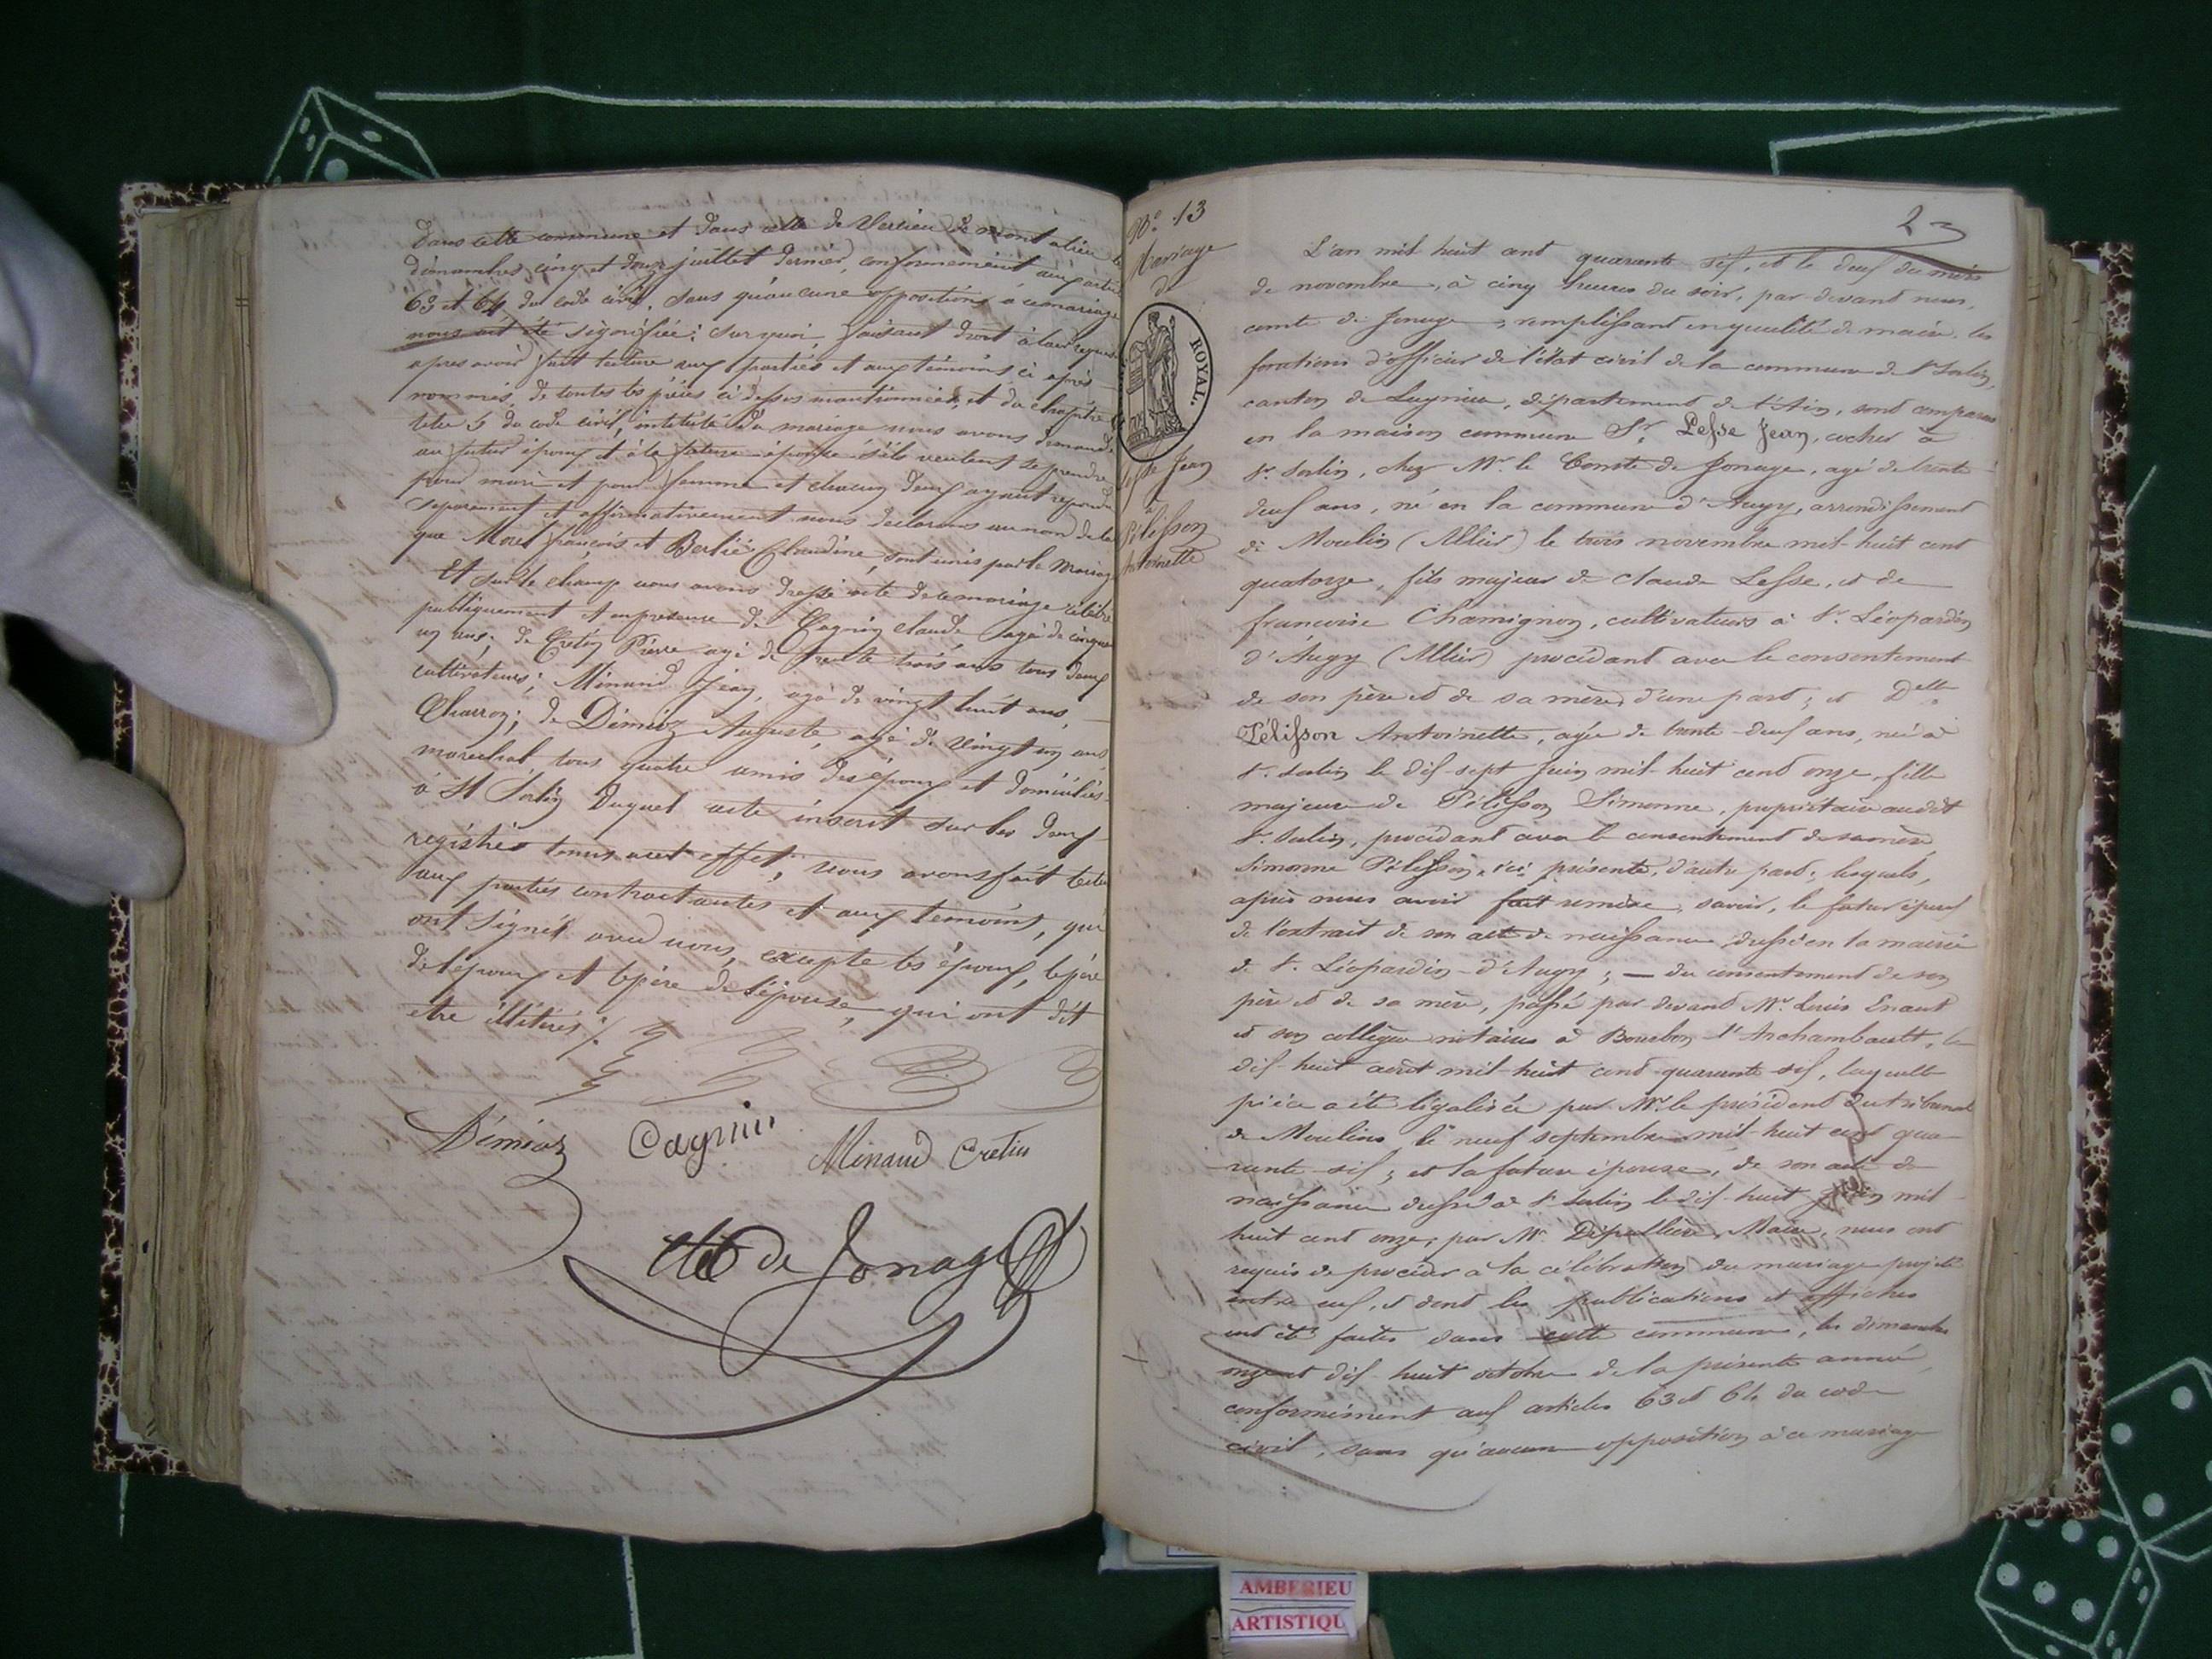 dans cette commune et dans celle de Vertieu de montalieu les
dimanches cinq et douze juillet dernier, conformément aux articles
63 et 64 du code civil. Sans qu'aucune opposition à ce mariage
nous ait été signifiée; Sur quoi, faisant droit à leur requisi
apres avoir fait lecture aux parties et aux témoins ci après
nommés, de toutes les pièces ci dessus mentionnées, et du chapitre
titre 5 du code civil, intitulé du mariage nous avons demandé
au futur époux et à la future épouse s'ils veulent se prendre
pour mari et pour femme et chacun deux ayant repondu
séparement et affirmativement nous declarons au nom de la
que Morel françois et Berlié Claudine, sont unis par le mariage
Et sur le champ nous avons dressé acte de ce mariage célébré
publiquement et en presence de Cagnin claude agé de cinquante
un ans; de Cretin Pierre agé de trente trois ans tous deux
cultivateurs; Minaud Jean, agé de vingt huit ans,
Charron; de Démiaz Auguste, agé de vingt un ans
marechal tous quatre amis des époux et domiciliés
à St Sorlin Duquel acte inscrit sur les deux
registres tenus a cet effet, nous avons fait lecture
aux parties contractantes et aux temoins, qui
ont signés avec nous, excepté les époux, le père
de l'époux et le père de l'épouse, qui ont dit
etre illitérés ./.
Démiaz Cagnin Minaud Cretin
de Jonage
No 13
Mariage
de
ROYAL.
Lesse Jean
à
Pélisson
Antoinette
23
L'an mil huit cent quarante six, et le deux du mois
de novembre, à cinq heures du soir, par devant nous,
comte de Jonage, remplissant en qualité de maire, les
fonctions d'officier de l'état civil de la commune de St Sorlin,
canton de Lagnieu, département de l'Ain, sont comparus
en la maison commune Sr. Lesse Jean, cocher à
St. Sorlin, chez Mr. le Comte de Jonage, agé de trente
deux ans, né en la commune d'Augy, arrondissement
de Moulin (Allier) le trois novembre mil-huit cent
quatorze, fils majeur de Claude Lesse, et de
francoise Chamignon, cultivateurs à St. Léopardin
d'Augy (Allier) procédant avec le consentement
de son père et de sa mère, d'une part; et Delle
Pélisson Antoinette, agée de trente-deux ans, née à
St. Sorlin le dix-sept Juin mil-huit cent onze, fille
majeure de Pélisson Simonne, propriétaire audit
St. Sorlin, procédant avec le consentement de sa mère
Simonne Pélisson, ici présente, d'autre part; lesquels,
après nous avoir fait remise, savoir, le futur époux
de l'extrait de son acte de naissance, dressé en la mairie
de St. Léopardin-d'Augy; — du consentement de son
père et de sa mère, passé par devant Mr. Louis Enaut
et son collègue notaires à Bourbon-l'Archambault, le
dix-huit août mil-huit cent quarante-six, laquelle
pièce a été légalisée par Mr. le président du tribunal
de Moulins, le neuf septembre mil-huit cent qua-
rante-six; et la future épouse, de son acte de
naissance dressé à St Sorlin le dix-huit Juin mil
huit cent onze, par Mr. Dépallière, Maire, nous ont
requis de procéder à la célébration du mariage projeté
entre eux, et dont les publications et affiches
ont été faites dans cette commune, les dimanches
onze et dix-huit octobre de la présente année,
conformément aux articles 63 et 64 du code
civil, sans qu'aucune opposition à ce mariage
AMBERIEU
ARTISTIQU